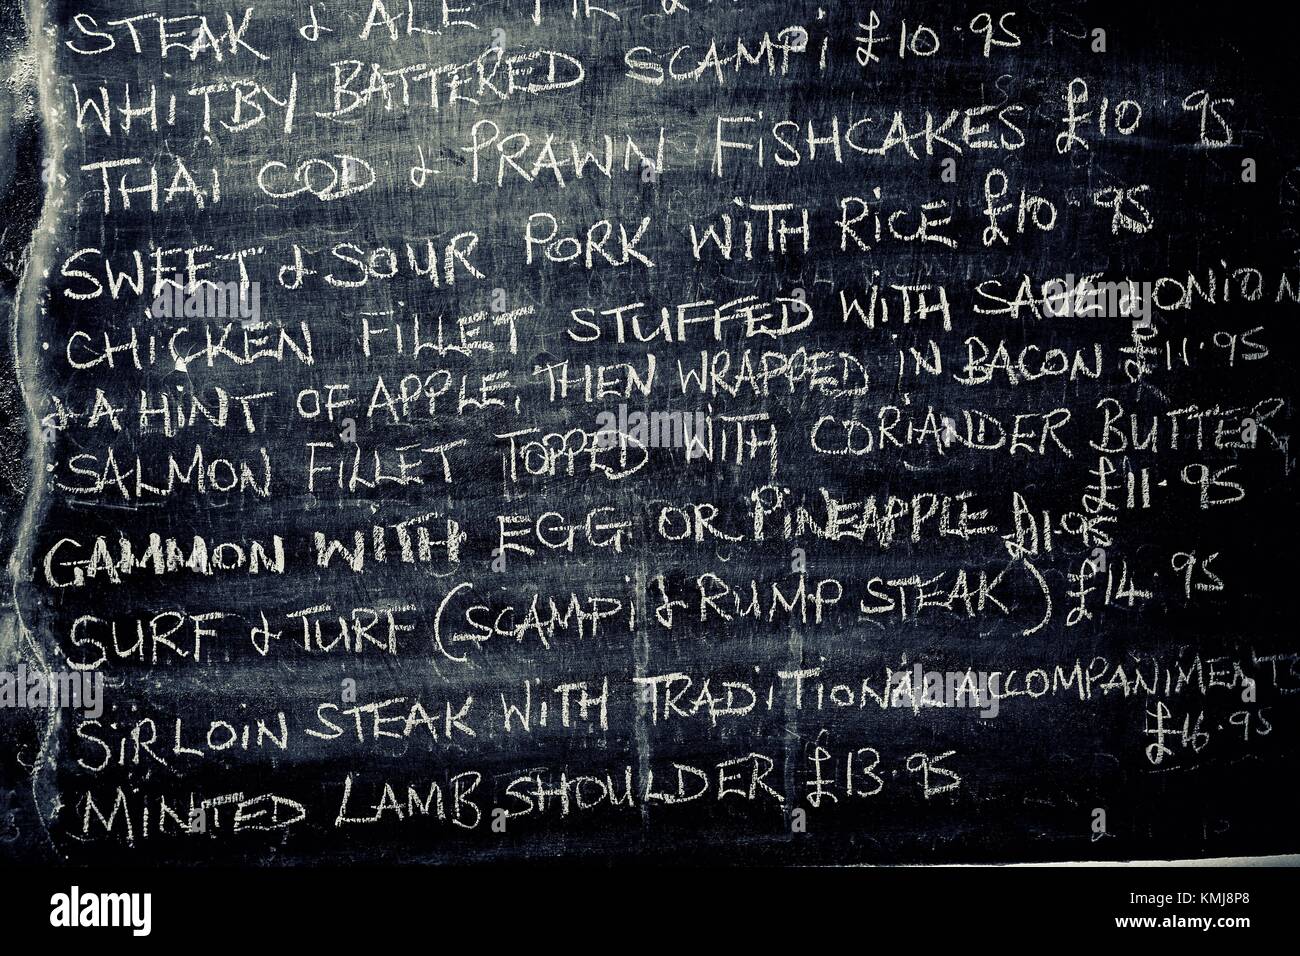 STEAK & ALE PIE £
WHITBY BATTERED SCAMPI £10.95
THAI COD & PRAWN FISHCAKES £10 95
SWEET & SOUR PORK WITH RICE £10 95
CHICKEN FILLET STUFFED WITH SAGE & ONION
& A HINT OF APPLE, THEN WRAPPED IN BACON £11.95
SALMON FILLET TOPPED WITH CORIANDER BUTTER
£11.95
GAMMON WITH EGG OR PINEAPPLE
SURF & TURF (SCAMPI & RUMP STEAK) £14.95
SIRLOIN STEAK WITH TRADITIONAL ACCOMPANIMENTS
£16.95
MINTED LAMB SHOULDER £13.95
alamy stock photo
KMJ8P8
www.alamy.com